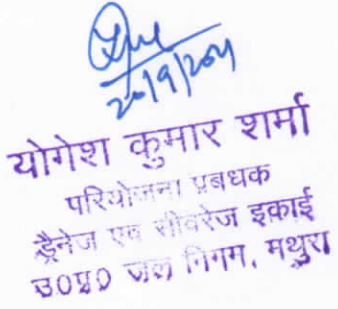 योगेश कुमार शर्मा
परियोजना प्रबधक
ड्रैनेज एव सीवरेज इकाई
उ0प्र0 जल निगम, मथुरा